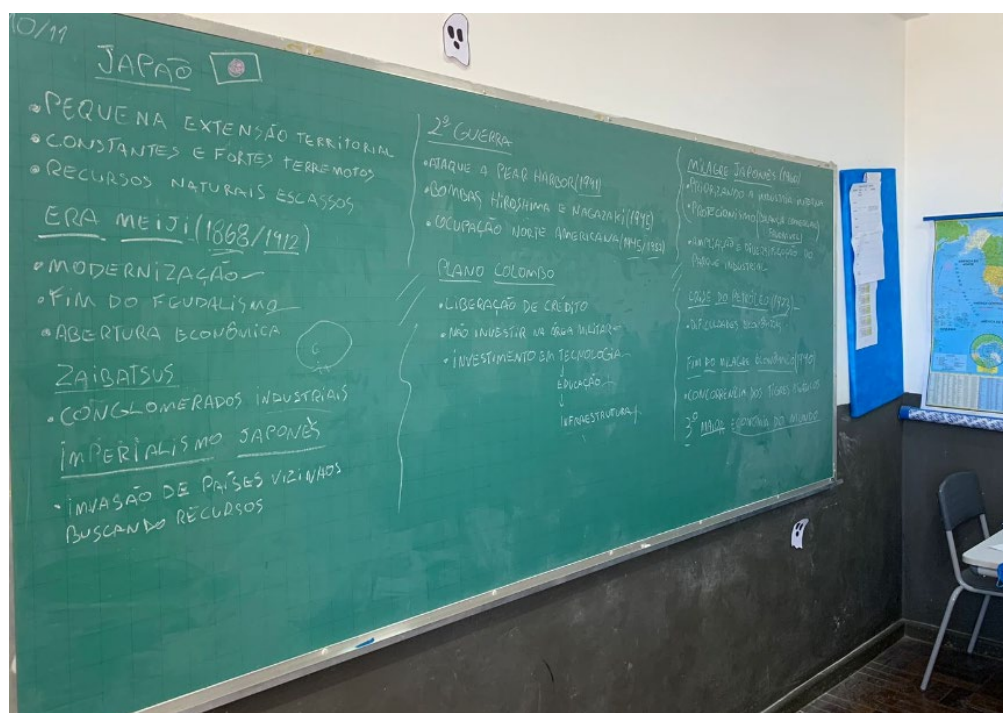 10/11
JAPÃO
• PEQUENA EXTENSÃO TERRITORIAL
• CONSTANTES E FORTES TERREMOTOS
• RECURSOS NATURAIS ESCASSOS
ERA MEIJI (1868/1912)
• MODERNIZAÇÃO
• FIM DO FEUDALISMO
• ABERTURA ECONÔMICA
ZAIBATSUS
• CONGLOMERADOS INDUSTRIAIS
IMPERIALISMO JAPONÊS
• INVASÃO DE PAÍSES VIZINHOS
BUSCANDO RECURSOS
2ª GUERRA
• ATAQUE A PEAR HARBOR (1941)
• BOMBAS HIROSHIMA E NAGAZAKI (1945)
• OCUPAÇÃO NORTE AMERICANA (1945/1952)
PLANO COLOMBO
• LIBERAÇÃO DE CRÉDITO
• NÃO INVESTIR NA ÁREA MILITAR
• INVESTIMENTO EM TECNOLOGIA
↓
EDUCAÇÃO
↓
INFRAESTRUTURA
MILAGRE JAPONÊS (1960)
• PRIORIZANDO A INDÚSTRIA
• PROTECIONISMO (BALANÇA COMERCIAL
FAVORÁVEL)
• AMPLIAÇÃO E DO
PARQUE INDUSTRIAL
CRISE DO PETRÓLEO
• DIFICULDADES ECONÔMICAS
FIM DO MILAGRE ECONÔMICO (1990)
• CONCORRÊNCIA DOS TIGRES
3ª MAIOR ECONOMIA DO MUNDO